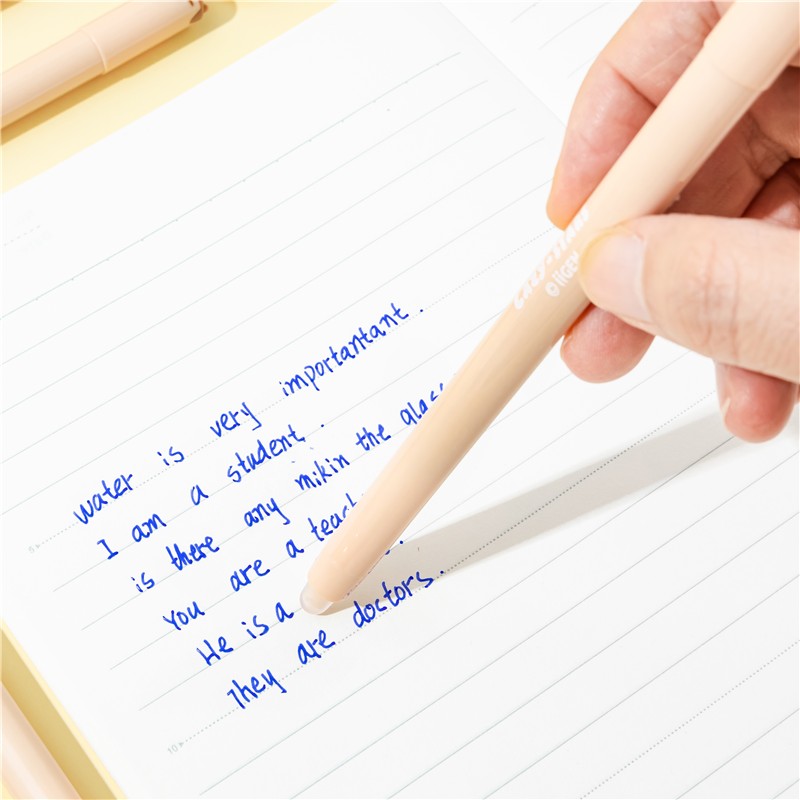 water is very importantant.
I am a student.
is there any mikin the glass
You are a teac
He is a
They are doctors.
10